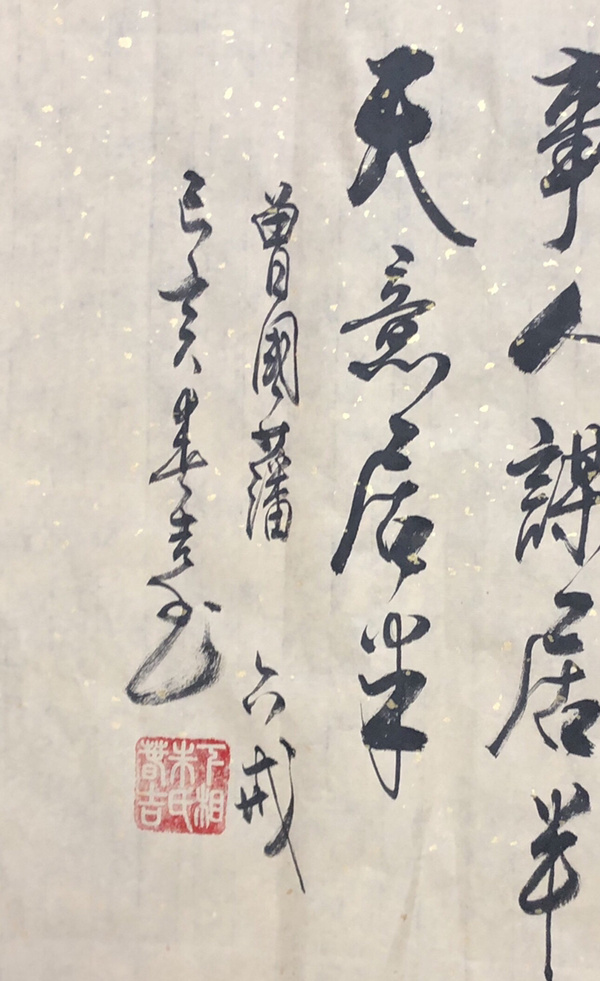 事人謀居半
天意居半
曾國藩 六戒
己亥春吉书
下相
朱氏
春吉